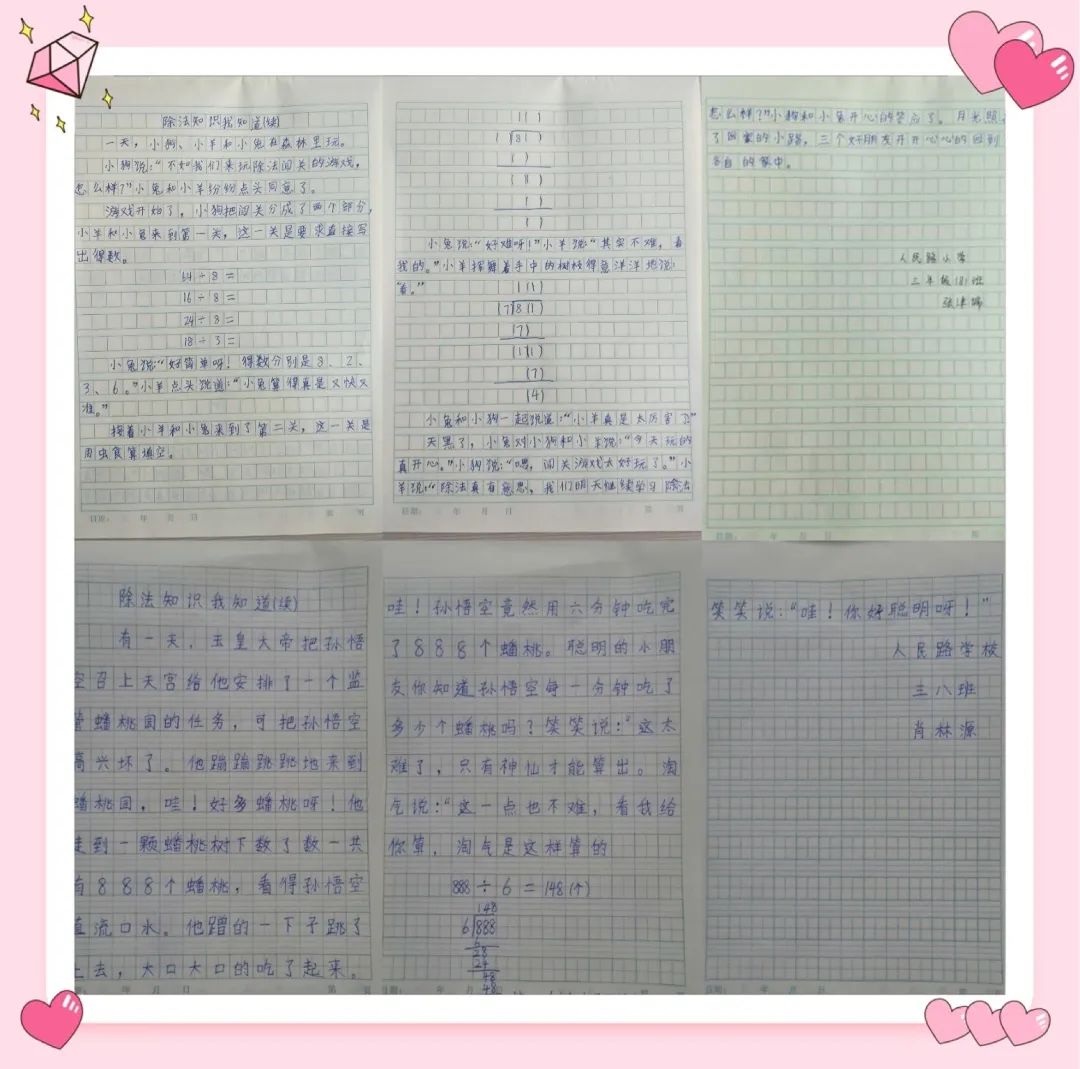 除法知识我知道(续)
一天，小狗、小羊和小兔在森林里玩。
小狗说：“不如我们来玩除法闯关的游戏，
怎么样？”小兔和小羊纷纷点头同意了。
游戏开始了，小狗把闯关分成了两个部分，
小羊和小兔来到第一关，这一关是要求直接写
出得数。
64÷8=
16÷8=
24÷8=
18÷3=
小兔说：“好简单呀！得数分别是8、2、
3、6。”小羊点头说道：“小兔算得真是又快又
准。”
接着小羊和小兔来到了第二关，这一关是
用虫食算填空。
日期： 年 月 日 第 页
1( )
( )8( )
( )
( 8 )
( )
( )
小兔说：“好难呀！”小羊说：“其实不难，看
我的。”小羊挥舞着手中的树枝得意洋洋地说：
“看。”
1(1)
(7)8(1)
(7)
(1)(1)
(7)
(4)
小兔和小狗一起说道：“小羊真是太厉害了”
天黑了，小兔对小狗和小羊说：“今天玩的
真开心。”小狗说：“嗯，闯关游戏太好玩了。”小
羊说：“除法真有意思，我们明天继续学习除法
日期： 年 月 日 第 页
怎么样？”小狗和小兔开心的笑了。月光照
了回家的小路，三个好朋友开开心心的回到
各自的家中。
人民路小学
三年级(8)班
日期： 年 月 日
除法知识我知道(续)
有一天，玉皇大帝把孙悟
空召上天宫给他安排了一个监
管蟠桃园的任务，可把孙悟空
高兴坏了。他蹦蹦跳跳地来到
蟠桃园，哇！好多蟠桃呀！他
走到一颗蟠桃树下数了数一共
有888个蟠桃，看得孙悟空
直流口水。他蹭的一下子跳了
上去，大口大口的吃了起来。
年 月 日 第
哇！孙悟空竟然用六分钟吃完
了888个蟠桃。聪明的小朋
友你知道孙悟空每一分钟吃了
多少个蟠桃吗？笑笑说：“这太
难了，只有神仙才能算出。淘
气说：“这一点也不难，看我给
你算，淘气是这样算的
888÷6=148(个)
148
6)888
6
28
24
48
48
笑笑说：“哇！你好聪明呀！”
人民路学校
三八班
肖林源